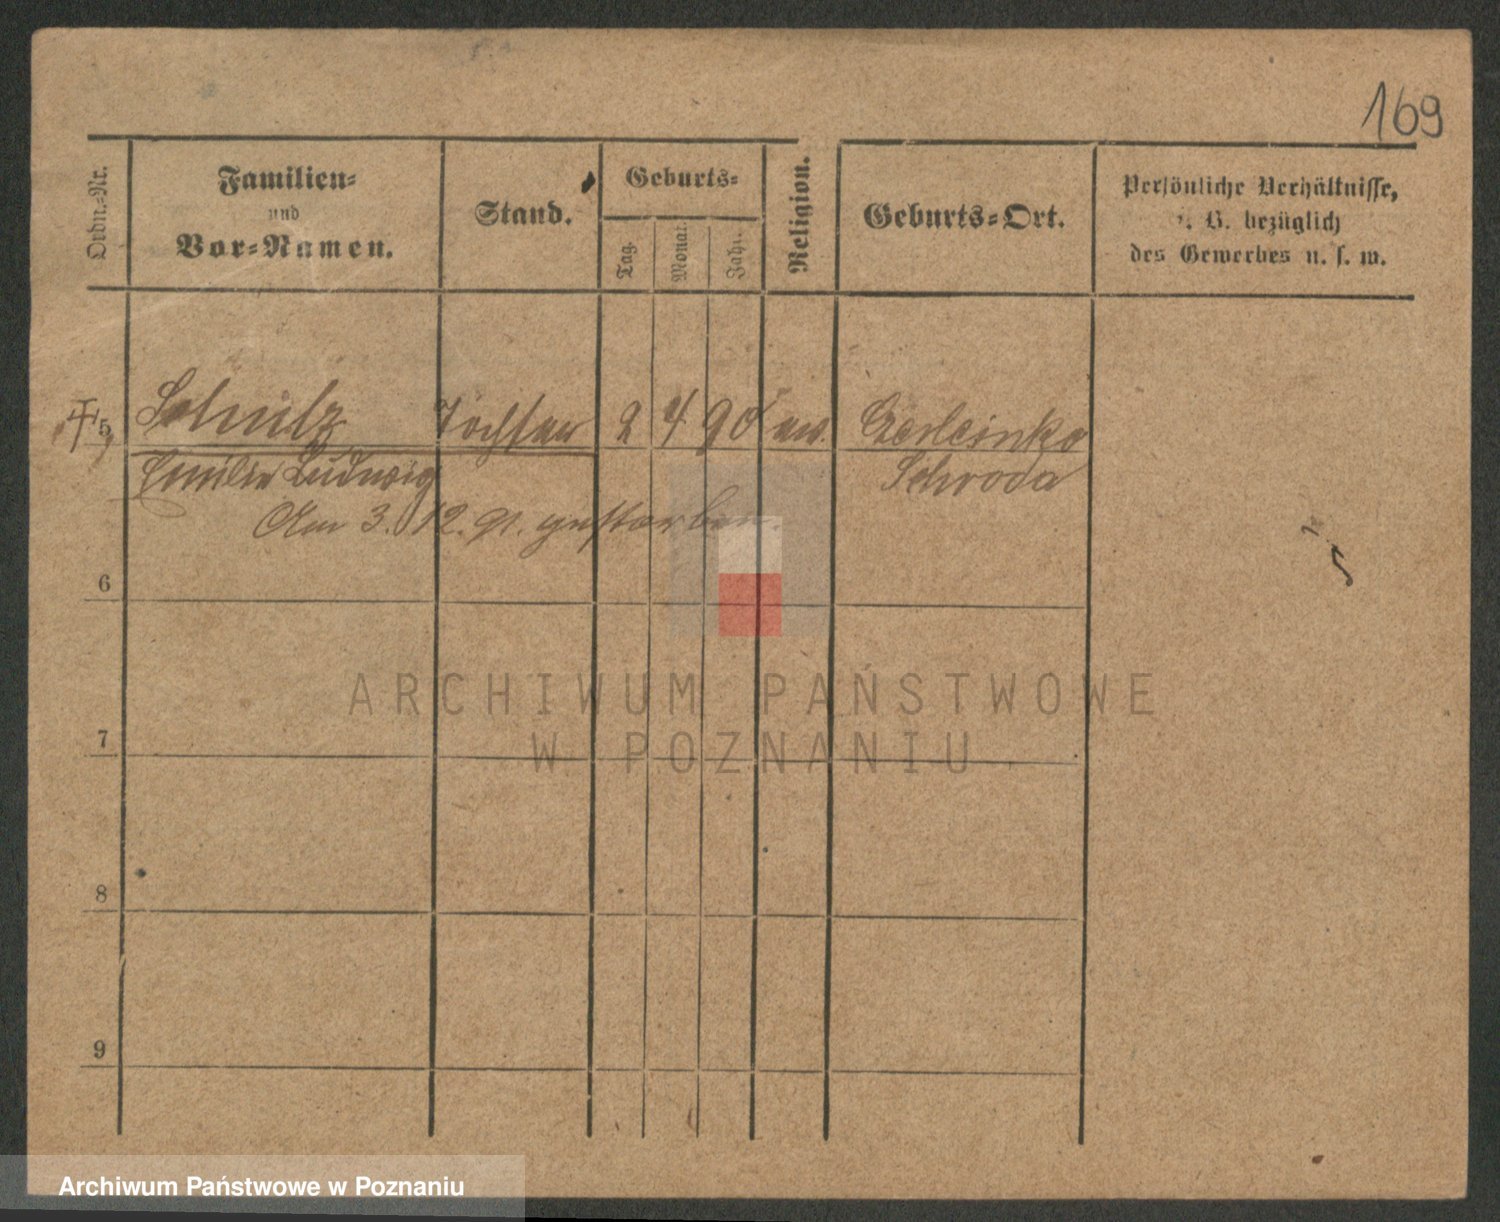 169
Ordn.-Nr.
Familien-
und
Vor-Namen.
Stand.
Geburts-
Tag.
Monat.
Jahr.
Religion.
Geburts-Ort.
Persönliche Verhältnisse,
z. B. bezüglich
des Gewerbes u. s. w.
5 Schulz Tochter 2 4 90 ev.
Emilie Ludwig Schroda
Am 3. 12. 91. gestorben.
6
7
8
9
ARCHIWUM PAŃSTWOWE
W POZNANIU
Archiwum Państwowe w Poznaniu